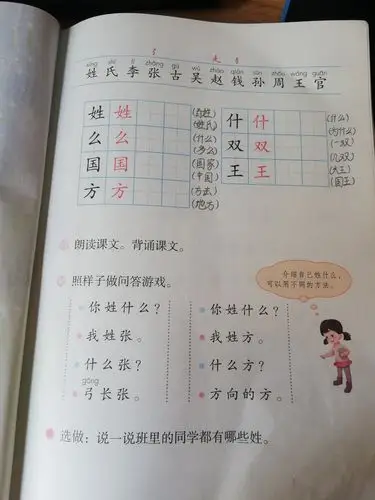 弓 走
xìng shì lǐ zhāng gǔ wú zhào qián sūn zhōu wáng guān
姓 氏 李 张 古 吴 赵 钱 孙 周 王 官
姓 姓 (百姓) (姓氏)
么 么 (什么) (多么)
国 国 (国家) (中国)
方 方 (方法) (地方)
什 什 (什么) (为什么)
双 双 (一双) (几双)
王 王 (大王) (国王)
朗读课文。背诵课文。
照样子做问答游戏。
介绍自己姓什么，
可以用不同的方法。
你姓什么？ 你姓什么？
我姓张。 我姓方。
什么张？ 什么方？
gōng
弓长张。 方向的方。
选做：说一说班里的同学都有哪些姓。